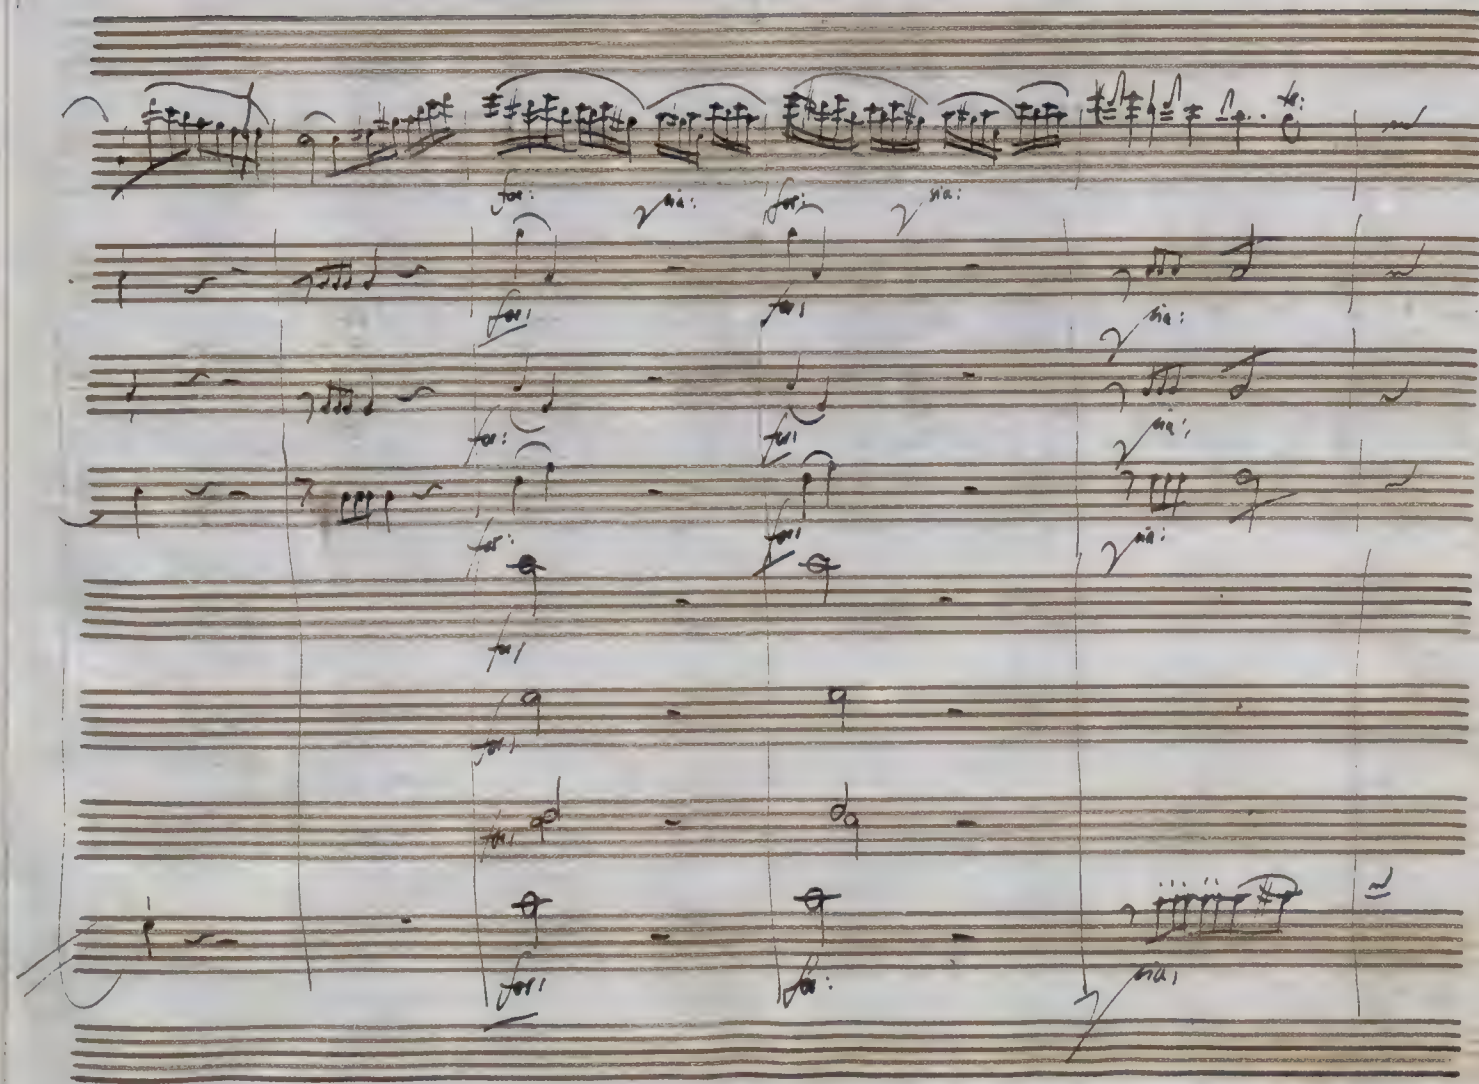 tr:
for: pia: for: pia:
for: for: pia:
for: for: pia:
for: for: pia:
for: 
for:
for:
for: for: pia: